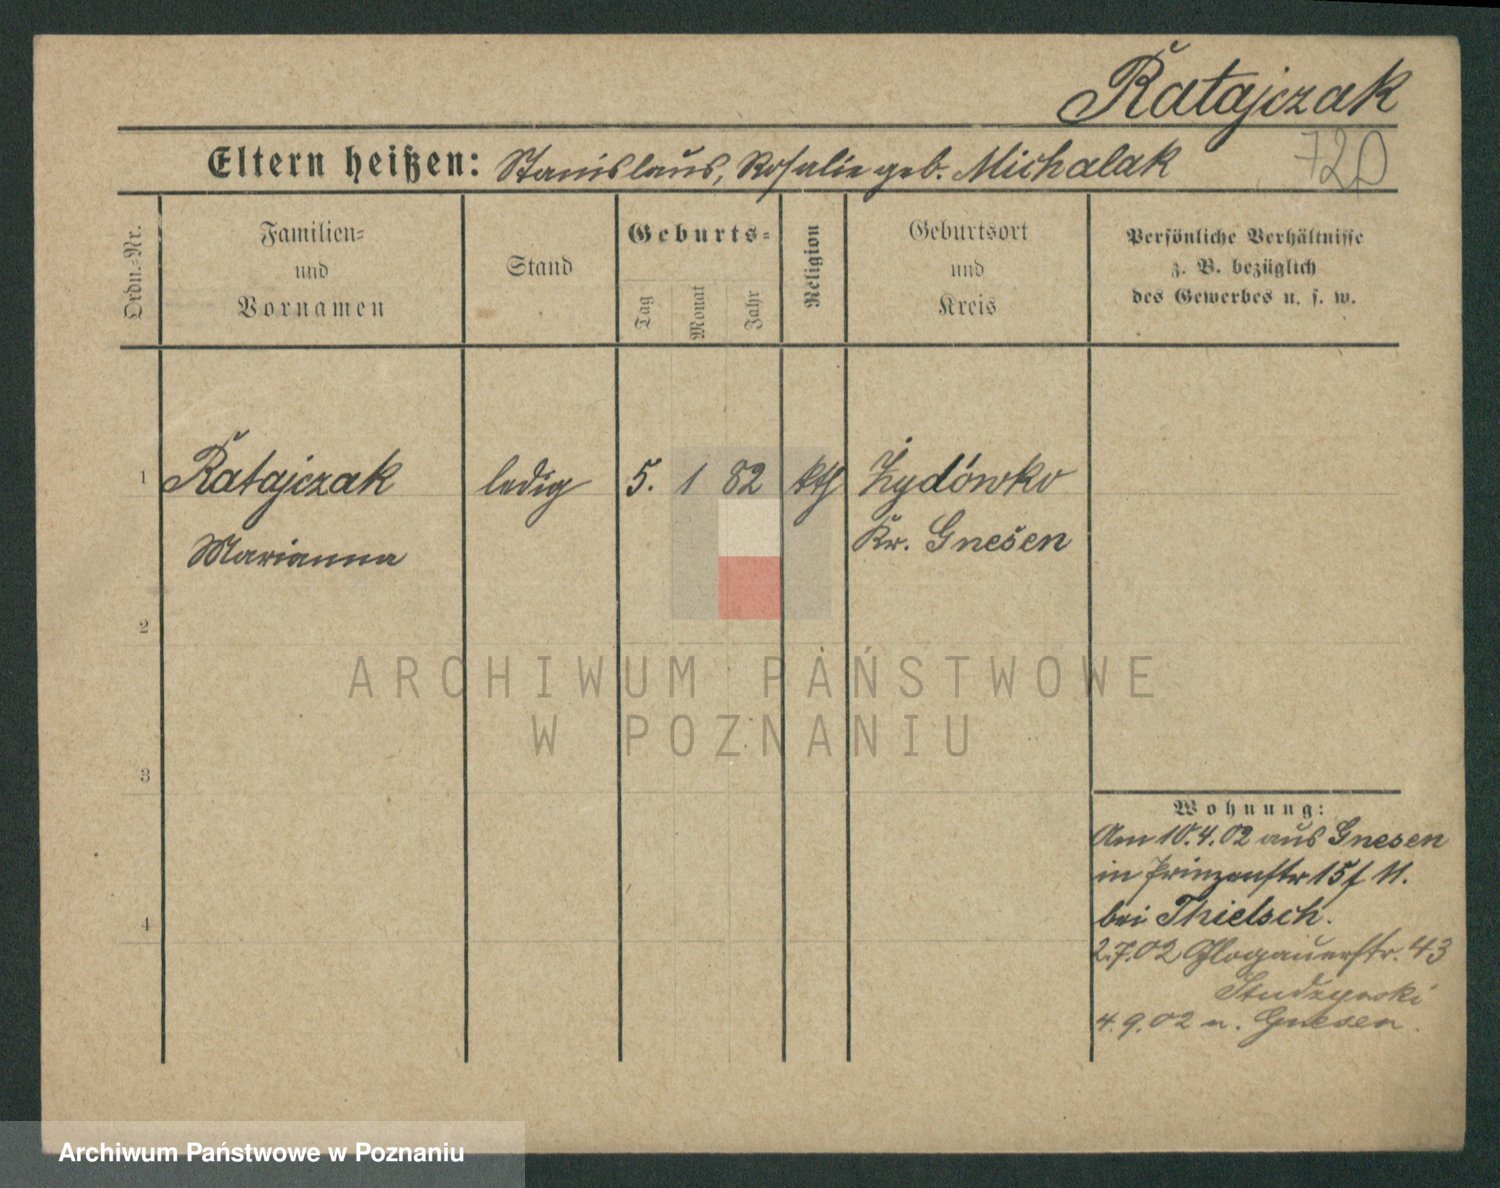 Ratajczak
720
Eltern heißen: Stanislaus, Rosalie geb. Michalak
Ordn.-Nr.
Familien-
und
Vornamen
Stand
Geburts-
Tag
Monat
Jahr
Religion
Geburtsort
und
Kreis
Persönliche Verhältnisse
z. B. bezüglich
des Gewerbes u. s. w.
1 Ratajczak ledig 5. 1 82 kth Żydówko
Marianna Kr. Gnesen
2
ARCHIWUM PAŃSTWOWE
W POZNANIU
3
Wohnung:
Am 10.4.02 aus Gnesen
in Prinzenstr 15 II.
bei Thielsch.
4
2.7.02 Glogauerstr. 43
Studzynski
4.9.02 n. Gnesen.
Archiwum Państwowe w Poznaniu